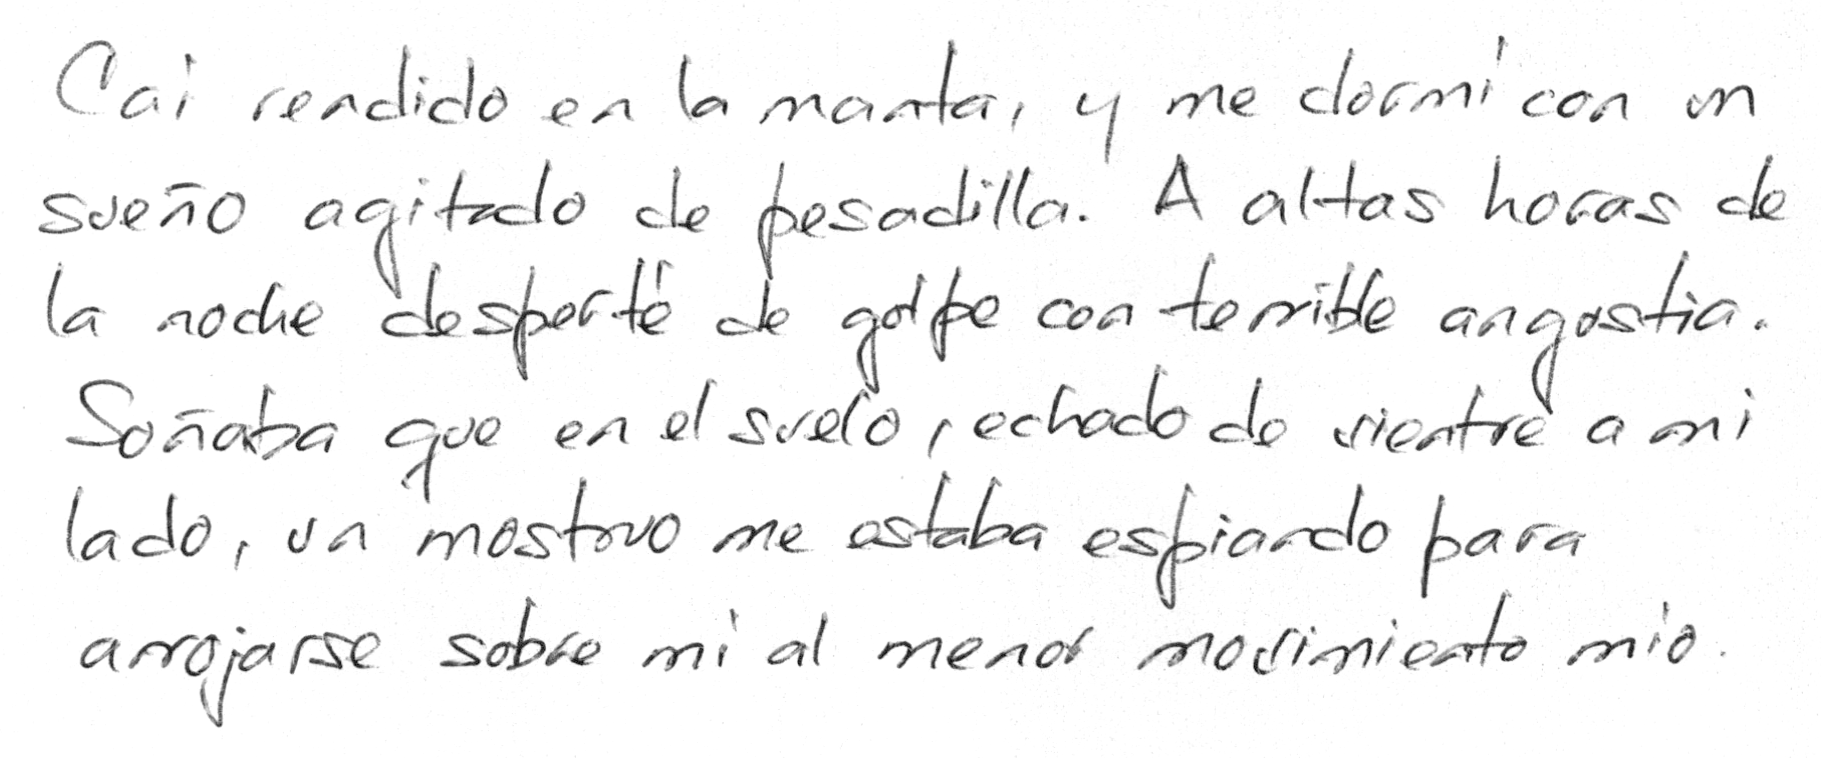 Caí rendido en la manta, y me dormí con un
sueño agitado de pesadilla. A altas horas de
la noche desperté de golpe con terrible angustia.
Soñaba que en el suelo, echado de vientre a mi
lado, un mostruo me estaba espiando para
arrojarse sobre mí al menor movimiento mío.